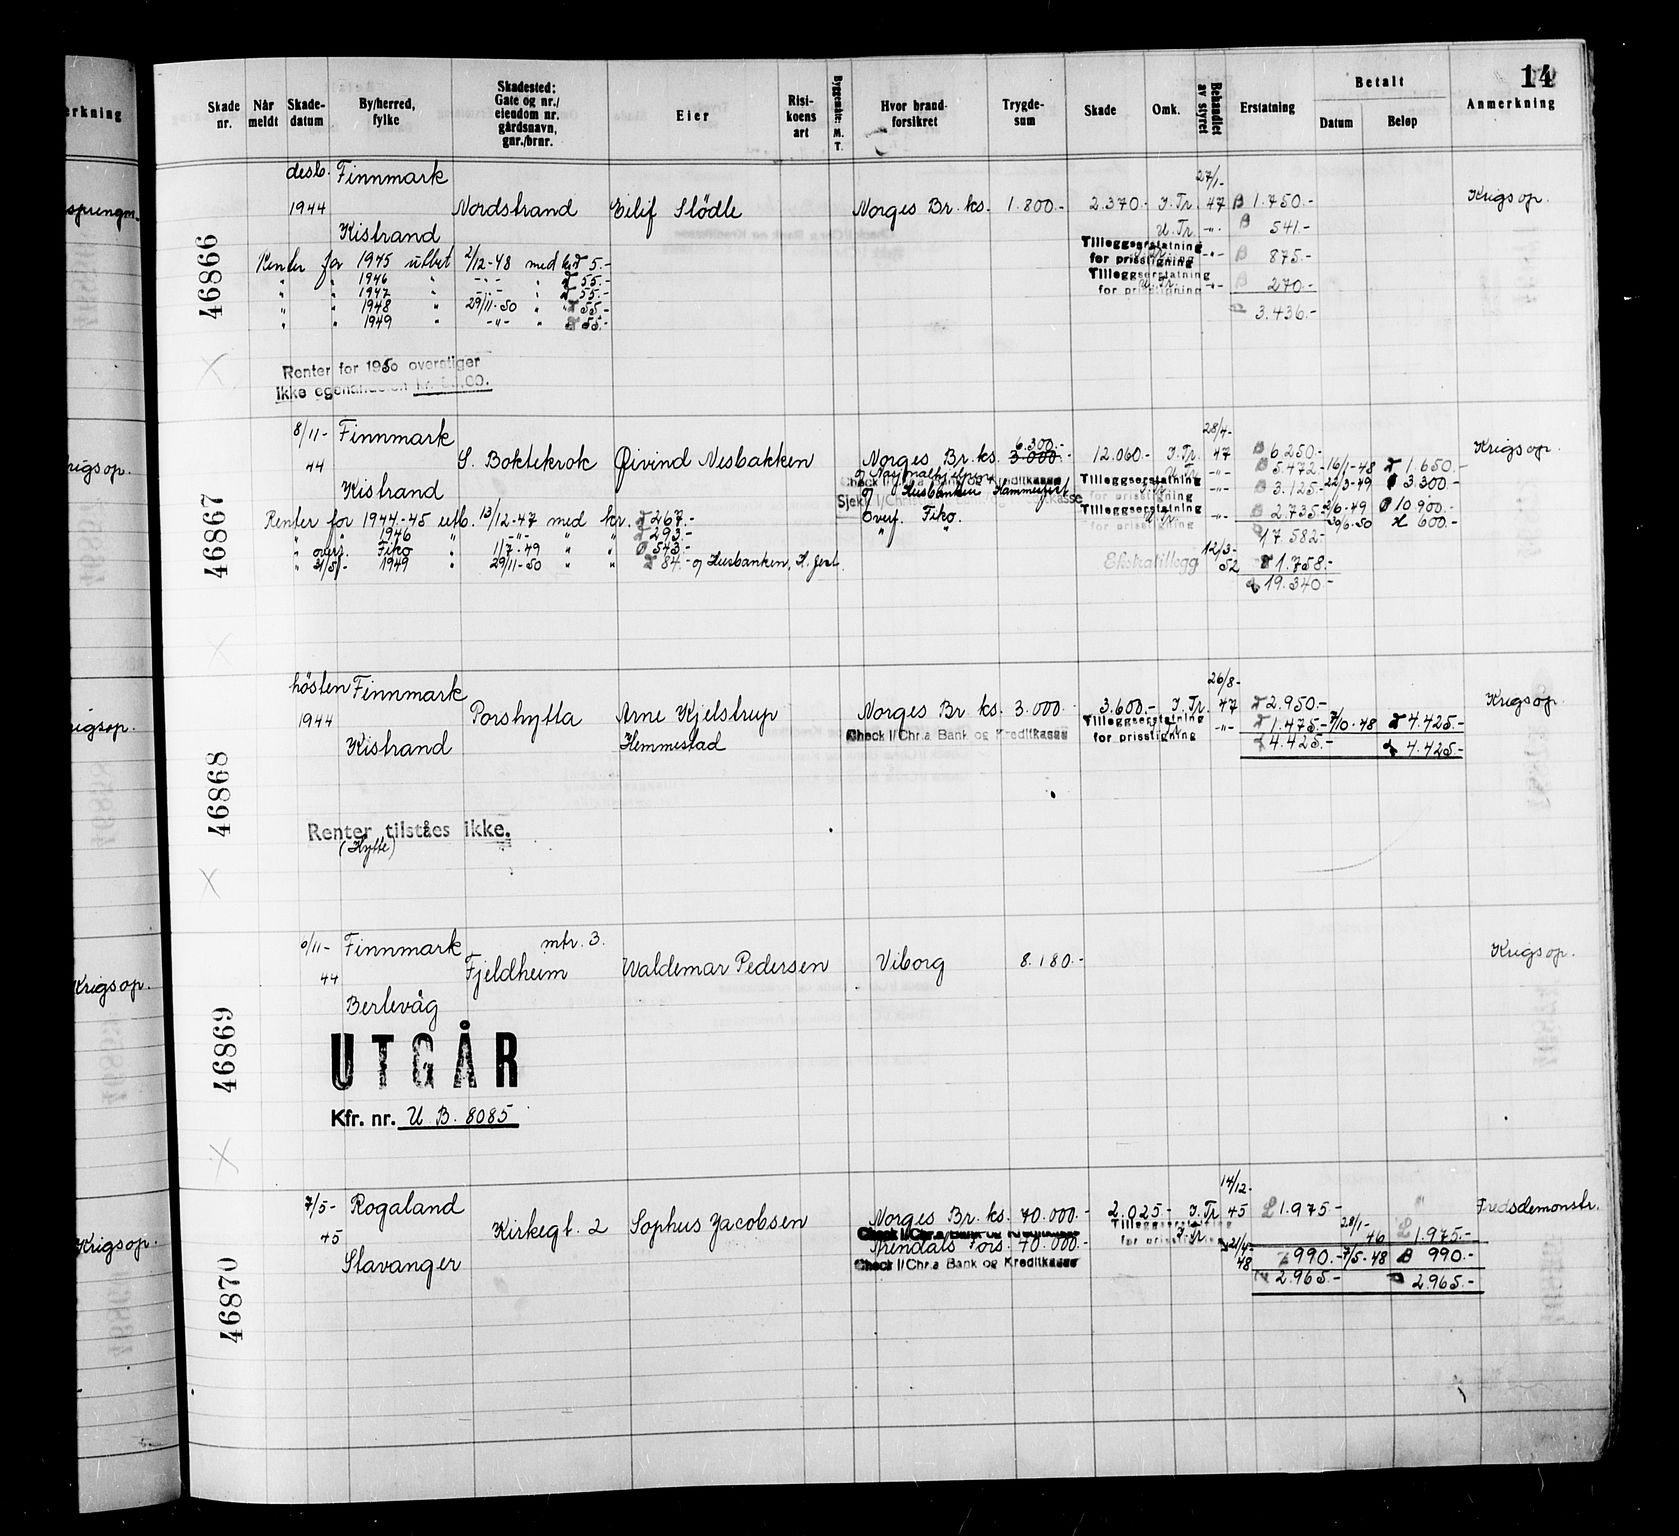 14
Skade nr.
Når meldt
Skade-datum
By/herred, fylke
Skadested: Gate og nr./ eiendom nr. gårdsnavn, gnr./brnr.
Eier
Risi-koens art
Hvor brand-forsikret
Trygde-sum
Skade
Omk.
Behandlet av styret
Erstatning
Betalt
Datum
Beløp
Anmerkning
46866
desb. Finnmark 27/1-
1944 Nordstrand Eilif Slödle Norges Br. ks. 1.800.- 2.370.- I. Tr. 47 1.750.- Krigsop.
Kistrand U. Tr. -"- 541.-
Tillegserstatning for prisstigning -"- 875.-
Tillegserstatning for prisstigning U. Tr. -"- 270.-
3.436.-
Renter for 1945 utbet 2/12-48 med kr 5.-
" " 1946 " -"- " 55.-
" " 1947 " -"- " 55.-
" " 1948 " 29/11-50 " 55.-
" " 1949 " -"- " 55.-
Renter for 1950 overstiger
ikke egenandelen kr.
46867
8/11- Finnmark 6.300.- 28/4-
44 S. Boktekrok Øivind Nesbakken Norges Br. ks. 3.000.- 12.060.- I. Tr. 47 6.250.- Krigsop.
U. Tr. -"- 5.472.- 16/1-48 1.650.-
Kistrand og Husbanken Hammerfest Tillegserstatning for prisstigning -"- 3.125.- 22/3-49 3.300.-
Tillegserstatning for prisstigning U. Tr. -"- 2.735.- 2/6-49 10.900.-
Overf. Fiko. 30/6-50 600.-
17.582.-
Ekstratillegg 12/3-52 1.758.-
19.340.-
Renter for 1944-45 utb. 13/12-47 med kr. 267.-
" " 1946 " -"- " " 293.-
" overf. Fiko " 1/7-49 " " 543.-
" 31/5/- 1949 " 29/11-50 " " 84.- og Husbanken, H.fest.
46868
hösten Finnmark 26/8-
1944 Porshytta Arne Kjelstrup Norges Br. ks. 3.000.- 3.600.- I. Tr. 47 2.950.- Krigsop.
Check I/Chr.a Bank og Kreditkasse Tillegserstatning for prisstigning -"- 1.475.- 7/10-48 4.425.-
Kistrand Hemmestad 4.425.- 4.425.-
Renter tilståes ikke.
(Hytte)
46869
6/11- Finnmark mtr. 3.
44 Fjeldheim Waldemar Pedersen Viborg 8.180.- Krigsop.
Berlevåg
UTGÅR
Kfr. nr. U B. 8085
46870
7/5- Rogaland 14/12-
45 Kirkegt. 2 Sophus Jacobsen Norges Br. ks. 70.000.- 2.025.- I. Tr. 45 1.975.- Fredsdemonstr.
Check I/Chr.a Bank og Kreditkasse 28/1-46 1.975.-
Stavanger Arendals Fors. 70.000.- Tillegserstatning for prisstigning 21/4-48 990.- 7/5-48 990.-
Check I/Chr.a Bank og Kreditkasse 2.965.- 2.965.-
Krigsop.
Krigsop.